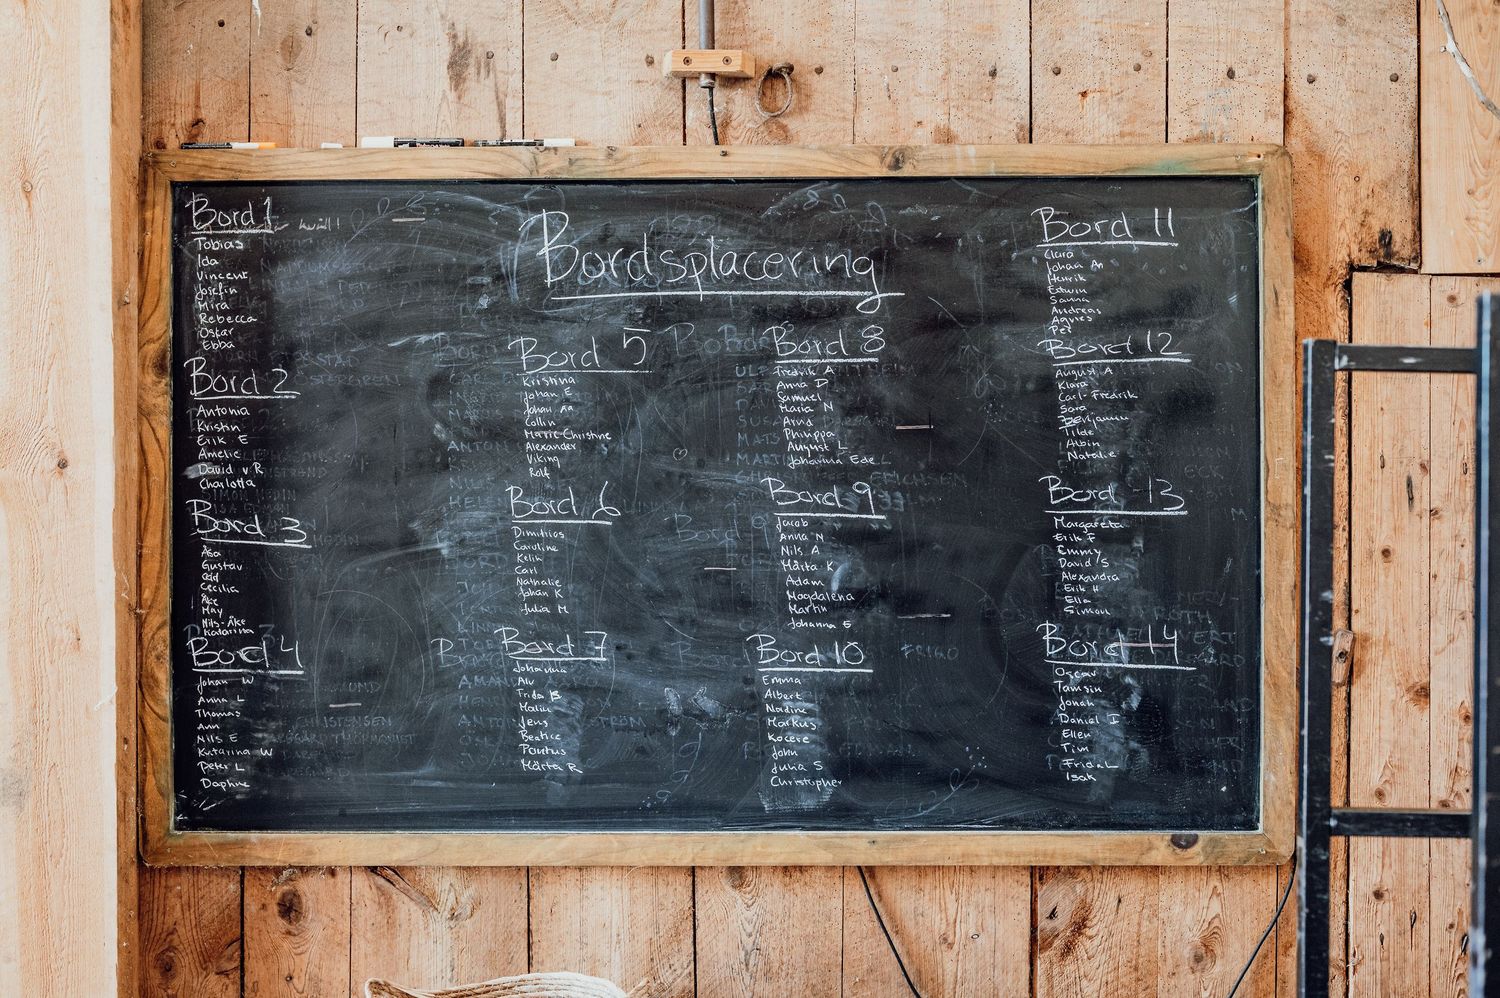 Bordsplacering
Bord 1
Tobias
Ida
Vincent
Josefin
Mira
Rebecca
Oskar
Ebba
Bord 2
Antonia
Kristin
Erik E
Amelie
David v R
Charlotta
Bord 3
Åsa
Gustav
Odd
Cecilia
Åke
May
Nils-Åke
Katarina
Bord 4
Johan W
Anna L
Thomas
Ann
Nils E
Katarina W
Peter L
Daphne
Bord 5
Kristina
Johan E
Johan Aa
Collin
Marie Christine
Alexander
Viking
Rolf
Bord 6
Dimitrios
Caroline
Kelih
Carl
Nathalie
Johan K
Julia M
Bord 7
Johanna
Alv
Frida B
Malin
Jens
Beatice
Pontus
Märta R
Bord 8
Fredrik A
Anna D
Samuel
Maria N
Arna
Philippa
August L
Johanna Edel
Bord 9
Jacob
Anna N
Nils A
Märta K
Adam
Magdalena
Martin
Johanna E
Bord 10
Emma
Albert
Nadine
Markus
Kocere
John
Julia S
Christopher
Bord 11
Clara
Johan An
Henrik
Edwin
Sanna
Andreas
Agnes
Per
Bord 12
August A
Klara
Carl-Fredrik
Sara
Benjamin
Tilde
Albin
Natalie
Bord 13
Margareta
Erik F
Emmy
David S
Alexandra
Erik H
Ella
Simon
Bord 14
Oscar
Tamsin
Jonah
Daniel I
Ellen
Tim
Frida L
Isak